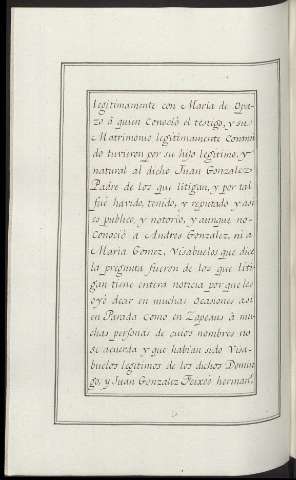 legitimamente con Maria de Opa-
zo à quien Conoció el testigo, y su
Matrimonio legitimamente Contrai
do tuvieron por su hijo legitimo, y
natural al dicho Juan Gonzalez
Padre de los que litigan, y por tal
fué havido, tenido, y reputado y asi
es publico, y notorio, y aunque no
Conoció à Andres Gonzalez, ni à
Maria Gomez, Visabuelos que dice
la pregunta fueron de los que liti
gan tiene entera noticia por que les
oyó decir en muchas ocasiones asi
en Parada Como en à mu
chas personas de cuios nombres no
se acuerda y que habian sido Visa-
buelos legitimos de los dichos Domin
go, y Juan Gonzalez Feixóo herman.